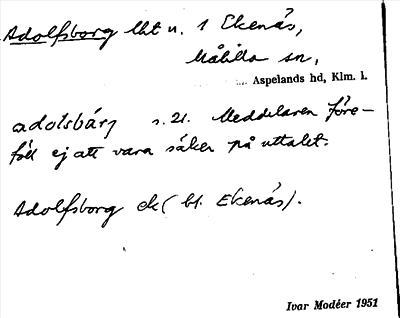 Adolfsborg lht u. 1 Ekenäs,
Målilla sn,
Aspelands hd, Klm. l.
adolsbárj s. 21. Meddelaren före-
föll ej att vara säker på uttalet.
Adolfsborg ek (bl. Ekenäs).
Ivar Modéer 1951